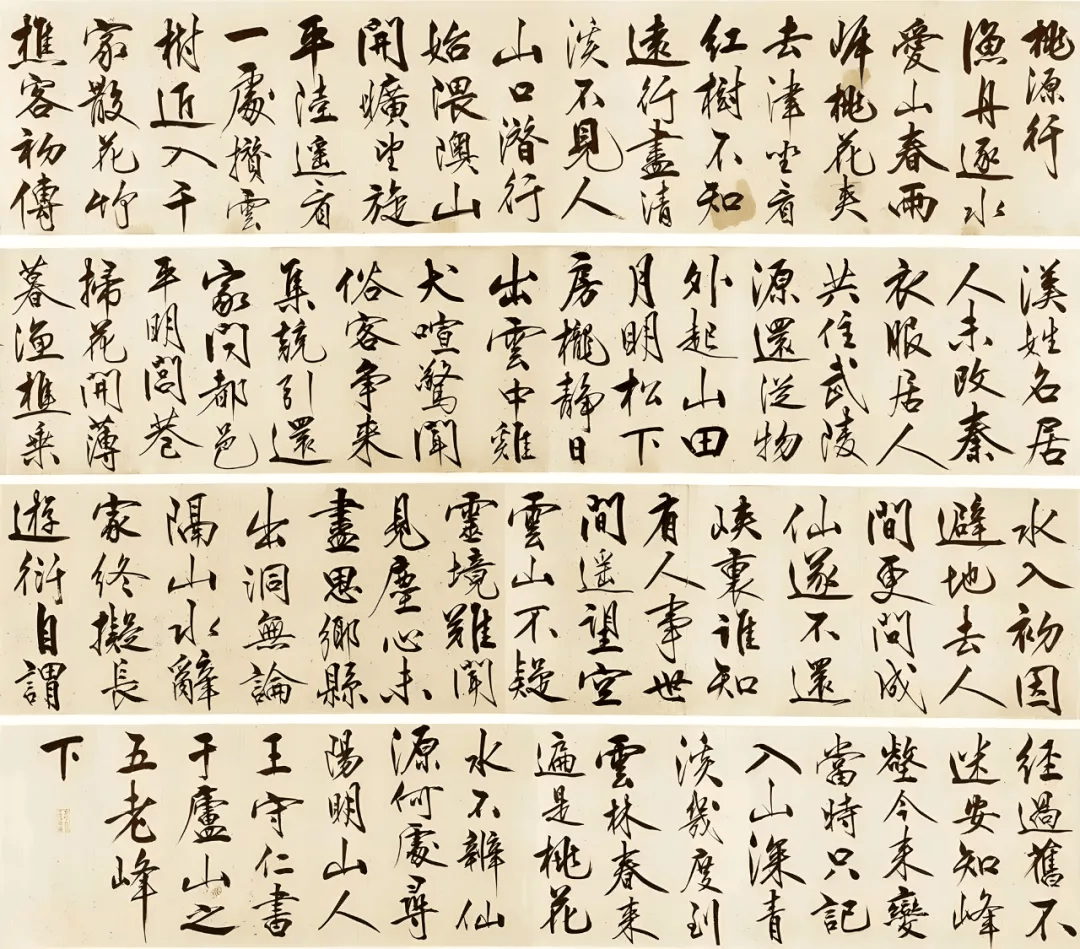 桃源行
漁舟逐水
愛山春兩
岸桃花夾
去津坐看
紅樹不知
遠行盡清
溪不見人
山口潛行
始隈隩山
開曠望旋
平陸遙看
一處攢雲
樹近入千
家散花竹
樵客初傳
漢姓名居
人未改秦
衣服居人
共住武陵
源還從物
外起山田
月明松下
房櫳靜日
出雲中雞
犬喧驚聞
俗客爭來
集競引還
家問都邑
平明閭巷
掃花開薄
暮漁樵乘
水入初因
避地去人
間更問成
仙遂不還
峽裏誰知
有人事世
間遙望空
雲山不疑
靈境難聞
見塵心未
盡思鄉縣
出洞無論
隔山水辭
家終擬長
遊衍自謂
經過舊不
迷安知峰
壑今來變
當時只記
入山深青
溪幾度到
雲林春來
遍是桃花
水不辨仙
源何處尋
陽明山人
王守仁書
于廬山之
五老峰
下